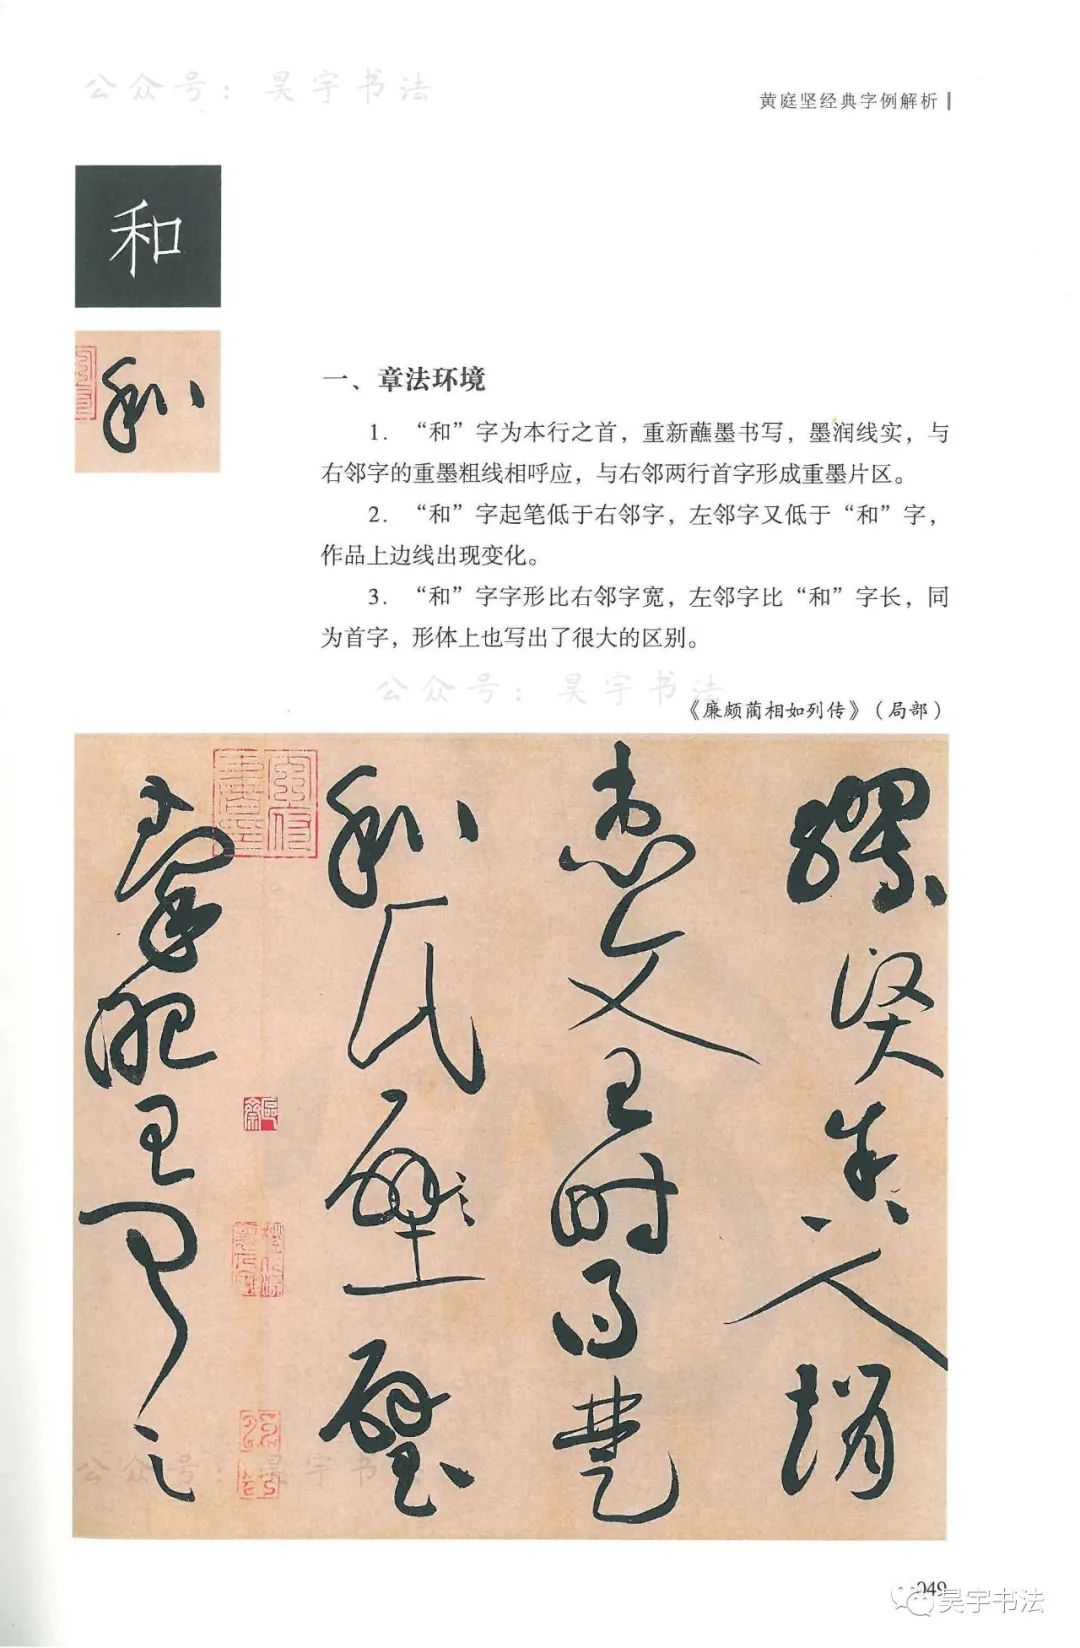 公众号：昊宇书法
黄庭坚经典字例解析
和
和
一、章法环境
1. “和”字为本行之首，重新蘸墨书写，墨润线实，与
右邻字的重墨粗线相呼应，与右邻两行首字形成重墨片区。
2. “和”字起笔低于右邻字，左邻字又低于“和”字，
作品上边线出现变化。
3. “和”字字形比右邻字宽，左邻字比“和”字长，同
为首字，形体上也写出了很大的区别。
公众号：昊宇书法
《廉颇蔺相如列传》（局部）
繆賢舍人趙
惠文王時得楚
和氏壁璧
秦昭王聞之
公众号：昊宇书法
049
昊宇书法